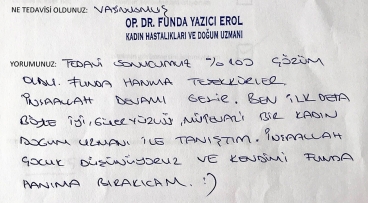 NE TEDAVİSİ OLDUNUZ: VAJİNUSMUŞ
OP. DR. FUNDA YAZICI EROL
KADIN HASTALIKLARI VE DOĞUM UZMANI
YORUMUNUZ: TEDAVİ SONUCUMUZ %100 ÇÖZÜM
OLDU. FUNDA HANIMA TEŞEKKÜRLER.
İNŞAALLAH DEVAMI GELİR. BEN İLK DEFA
BÖYLE İYİ, GÜLERYÜZLÜ, MÜTEVAZİ BİR KADIN
DOĞUM UZMANI İLE TANIŞTIM. İNŞALLAH
ÇOCUK DÜŞÜNÜYORUZ VE KENDİMİ FUNDA
HANIMA BIRAKICAM. :)